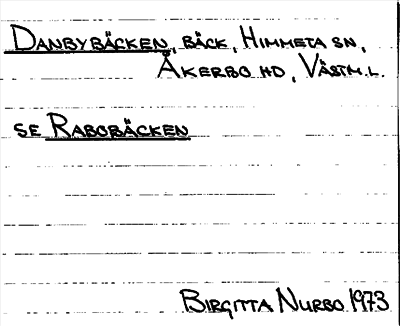 DANBYBÄCKEN, BÄCK, HIMMETA SN,
ÅKERBO HD, VÄSTM.L.
SE RABOBÄCKEN
BIRGITTA NURBO 1973